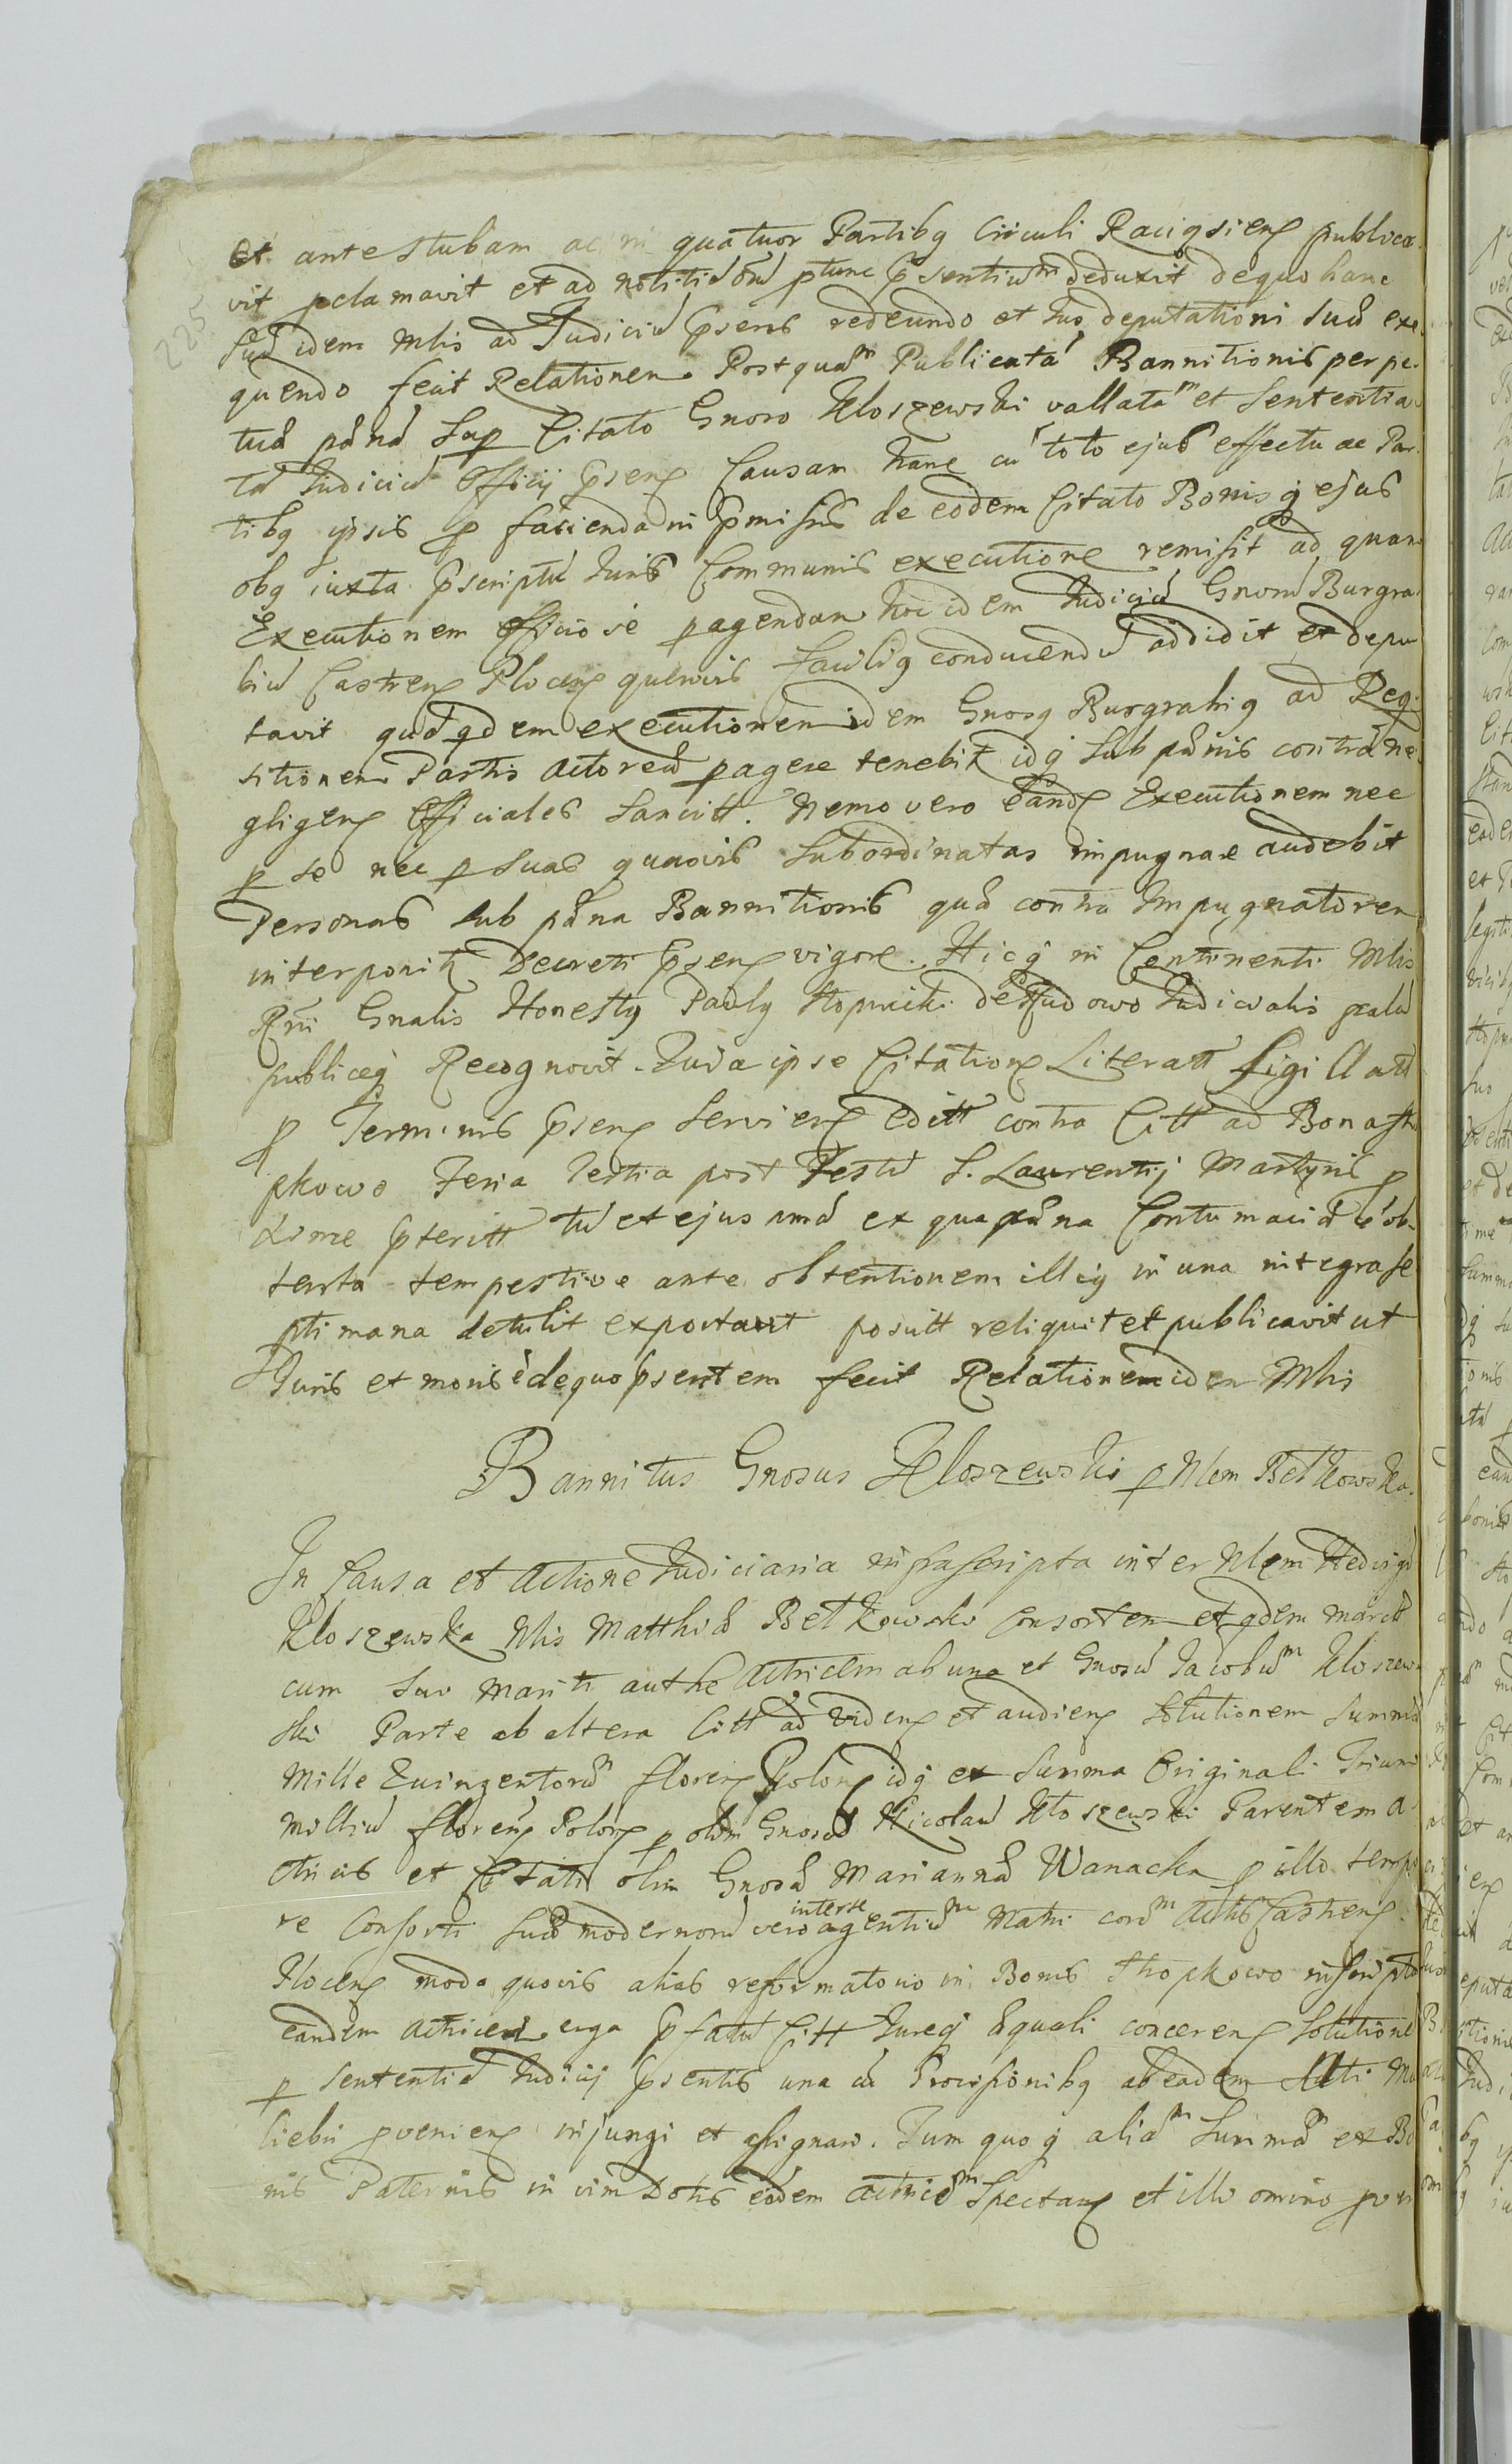 225
et ante stubam ac in quatuor Partibq Circuli Raciqsienß publica
vit pclamavit et ad notitiã oiũ ptunc psentiũm deduxit de quo hanc
suã idem Mlis ad Judiciũ psens redeundo et suo deputationi suã exe
quendo fecit Relationem. Postquãm Publicatã Bannitionis perpe
tuã pãnã sup Citato Gnoso Kloszewski vallatãm et sententia
tã Judiciũ Officij psenß Causam hanc cũ toto ejus effectu ac Par
tibq ipsis p facienda in pmissis de eodem Citato Bonisqj ejus
obq iuxta pscriptũ Juris Communis executione remisit ad quam
Executionem officiose pagendam hoc idem Judiciũ Gnorũ Burgra
biũ Castrenß Plocenß quemvis facilīq conducendũ addidit et depu
tavit quã qdem executionem idem Gnosq Burgrabiq ad Reqi
sitionem Partis Actoreã pagere tenebit idqj sub pãnis contrã ne
gligenß Officiales sancitt. Nemo vero eandß Executionem nec
p se nec p suas quasvis subordinatas impugnare audebit
Personas sub pãna Bannitionis quã contra Impugnatorem
interponit Decreti psenß vigore. Hicqj in Continenti Mlis
Rni Gnalis Honestq Paulq Stopnicki de Judicialis palã
publiceqj Recognovit. Quia ipse Citationß Literatt sigillatt
p Terminis psenß servienß editt contra Citt ad Bona Sto
pkowo Feria Tertia post Festũ S. Laurentij Martyris p
xime pteritt tũ et ejus unã ex qua pãna Contumaciã è ob-
tenta tempestive ante obtentionem illiq in una integra se
ptimana detulit exportavit posuitt reliquit et publicavit ut
Juris et moris è de quo psentem fecit Relationem idem Mlis
Bannitus Gnosus Kloszewski p Nlem Betkowska.
In Causa et Actione Judiciaria infrascripta inter Nlem Hedvigẽ
Kloszewska Nlis Matthiã Betkowski Consortem et qdem maritt
cum suo mariti authe Actricem ab una et Gnosũ Jacobũm Kloszew
ski Parte ab altera Citt ad videnß et audienß solutionem summã
Mille Quingentorũm florenß Polonß idqj ex summa Originali Trium
milliũ florenß Polonß p olim Gnosũ Nicolaũ Kloszewski Parentem A
ctricis et Citati olim Gnosã Mariannã Wanacka p illo tempo
re Consorti suã modernorũ vero interse agentiũm Matri corũm Actis Castrenß
Plocenß modo quovis alias reformatorio in Bonis Stopkowo inscripto
eandem Actricem erga pfatũ Citt Jureqj Aquali concerenß solutione
p sententiã Judicij psentis una cũ Provisionibq ab eadem Acti Mu
liebri pvenienß injungi et assignari. Tum quoqj aliãm summãm ex Bo
nis Paternis in vim Dotis eidem Actricẽm spectanß et illo omnino pvn